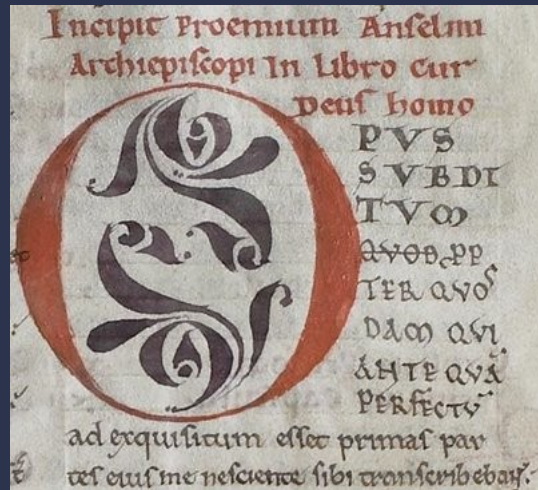 Incipit Proemium Anselmi
Archiepiscopi In Libro Cur
Deus homo
OPVS
SVBDI
TVM
QVOD PP
TER QVOS
DAM QVI
ANTEQVA
PERFECTV
ad exquisitum esset primas par
tes eius me nesciente sibi transcribebant.